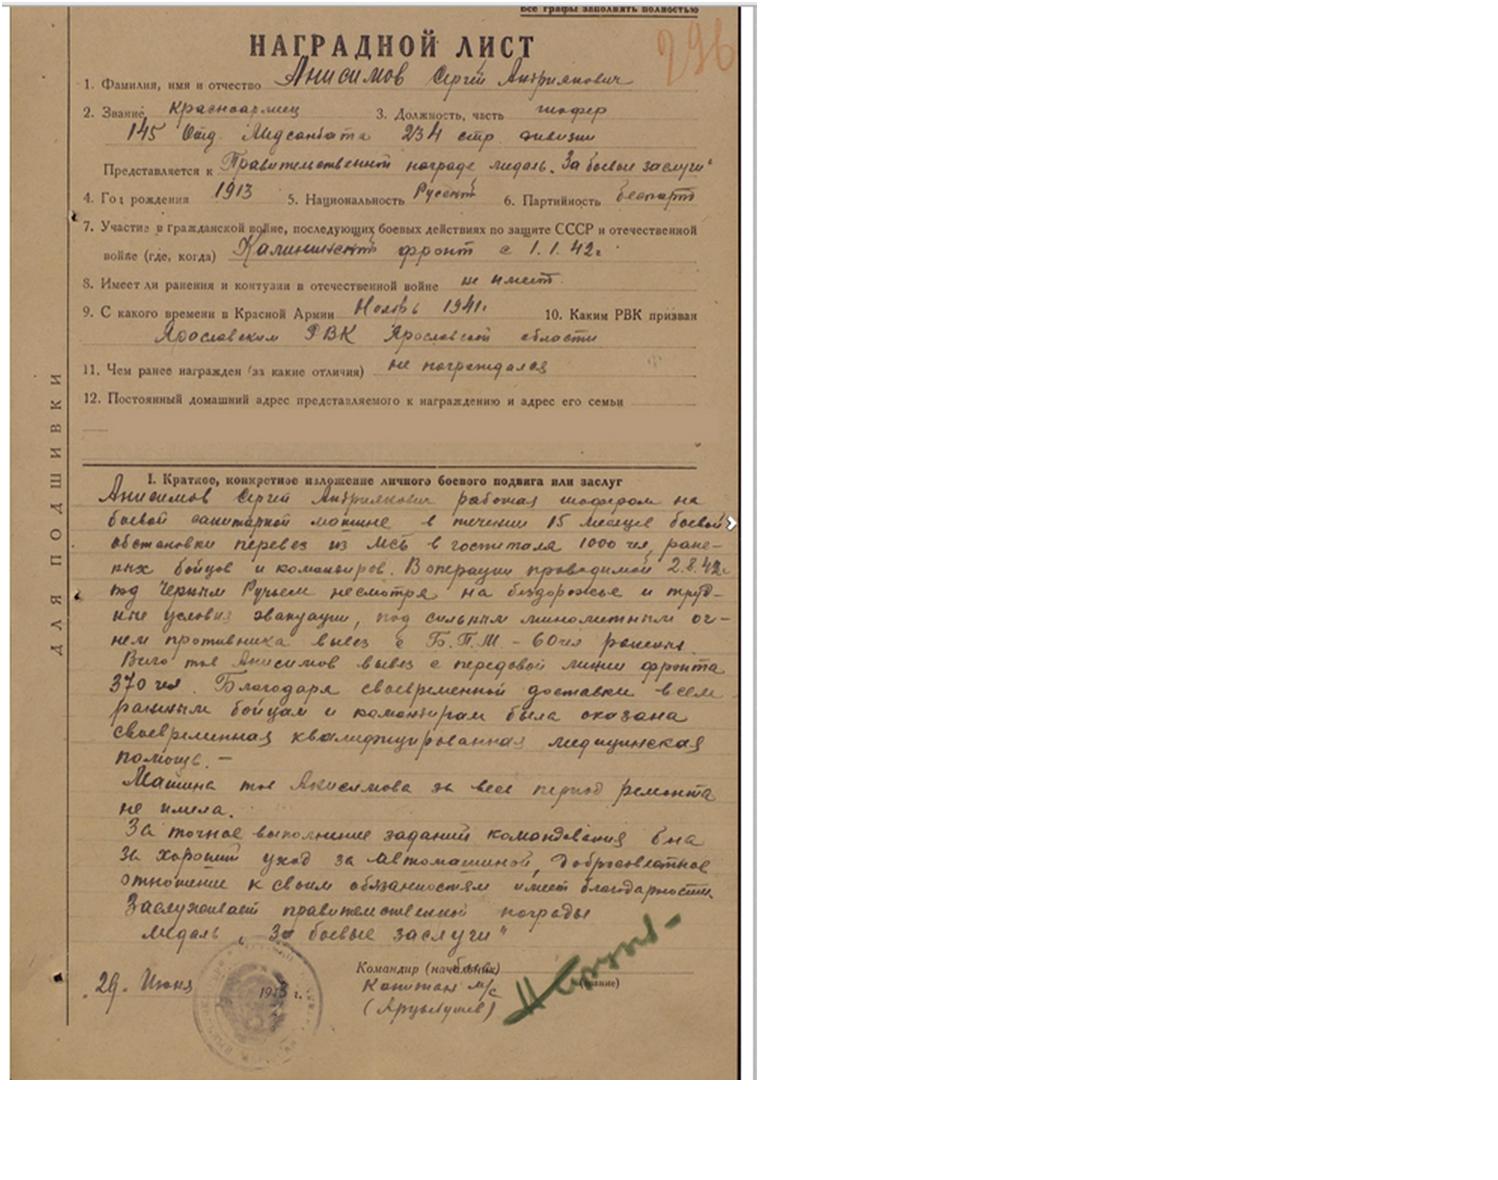 Все графы заполнять полностью
296
НАГРАДНОЙ ЛИСТ
1. Фамилия, имя и отчество Анисимов Сергей Андриянович
2. Звание Красноармеец 3. Должность, часть шофер
145 Отд. Медсанбата 234 стр. дивизии
Представляется к Правительственной награде медаль „За боевые заслуги“
4. Год рождения 1913 5. Национальность Русский 6. Партийность беспарт
7. Участие в гражданской войне, последующих боевых действиях по защите СССР и отечественной
войне (где, когда) Калининский фронт с 1.1.42г
8. Имеет ли ранения и контузии в отечественной войне не имеет
9. С какого времени в Красной Армии Ноябрь 1941г 10. Каким РВК призван
Ярославским РВК Ярославской области
11. Чем ранее награжден (за какие отличия) не награждался
12. Постоянный домашний адрес представляемого к награждению и адрес его семьи
ДЛЯ ПОДШИВКИ
I. Краткое, конкретное изложение личного боевого подвига или заслуг
Анисимов Сергей Андриянович работая шофером на
боевой санитарной машине в течении 15 месяцев боевой
обстановки перевез из МСБ в госпиталя 1000 чел, ране-
ных бойцов и командиров. В операции проводимой 2.8.42г
под Черным Ручьем несмотря на бездорожье и труд-
ные условия эвакуации, под сильным минометным ог-
нем противника вывез с Б.П.М - 60 чел раненых.
Всего тов Анисимов вывез с передовой линии фронта
370 чел. Благодаря своевременной доставки всем
раненым бойцам и командирам была оказана
своевременная квалифицированная медицинская
помощь. —
Машина тов Анисимова за весь период ремонта
не имела.
За точное выполнение заданий командования
за хороший уход за автомашиной, добросовестное
отношение к своим обязанностям имеет благодарности.
Заслуживает правительственной награды
медаль „За боевые заслуги“
Командир (начальник)
29. Июня 1943 г. Капитан м/с (звание)
(Арцыбушев)